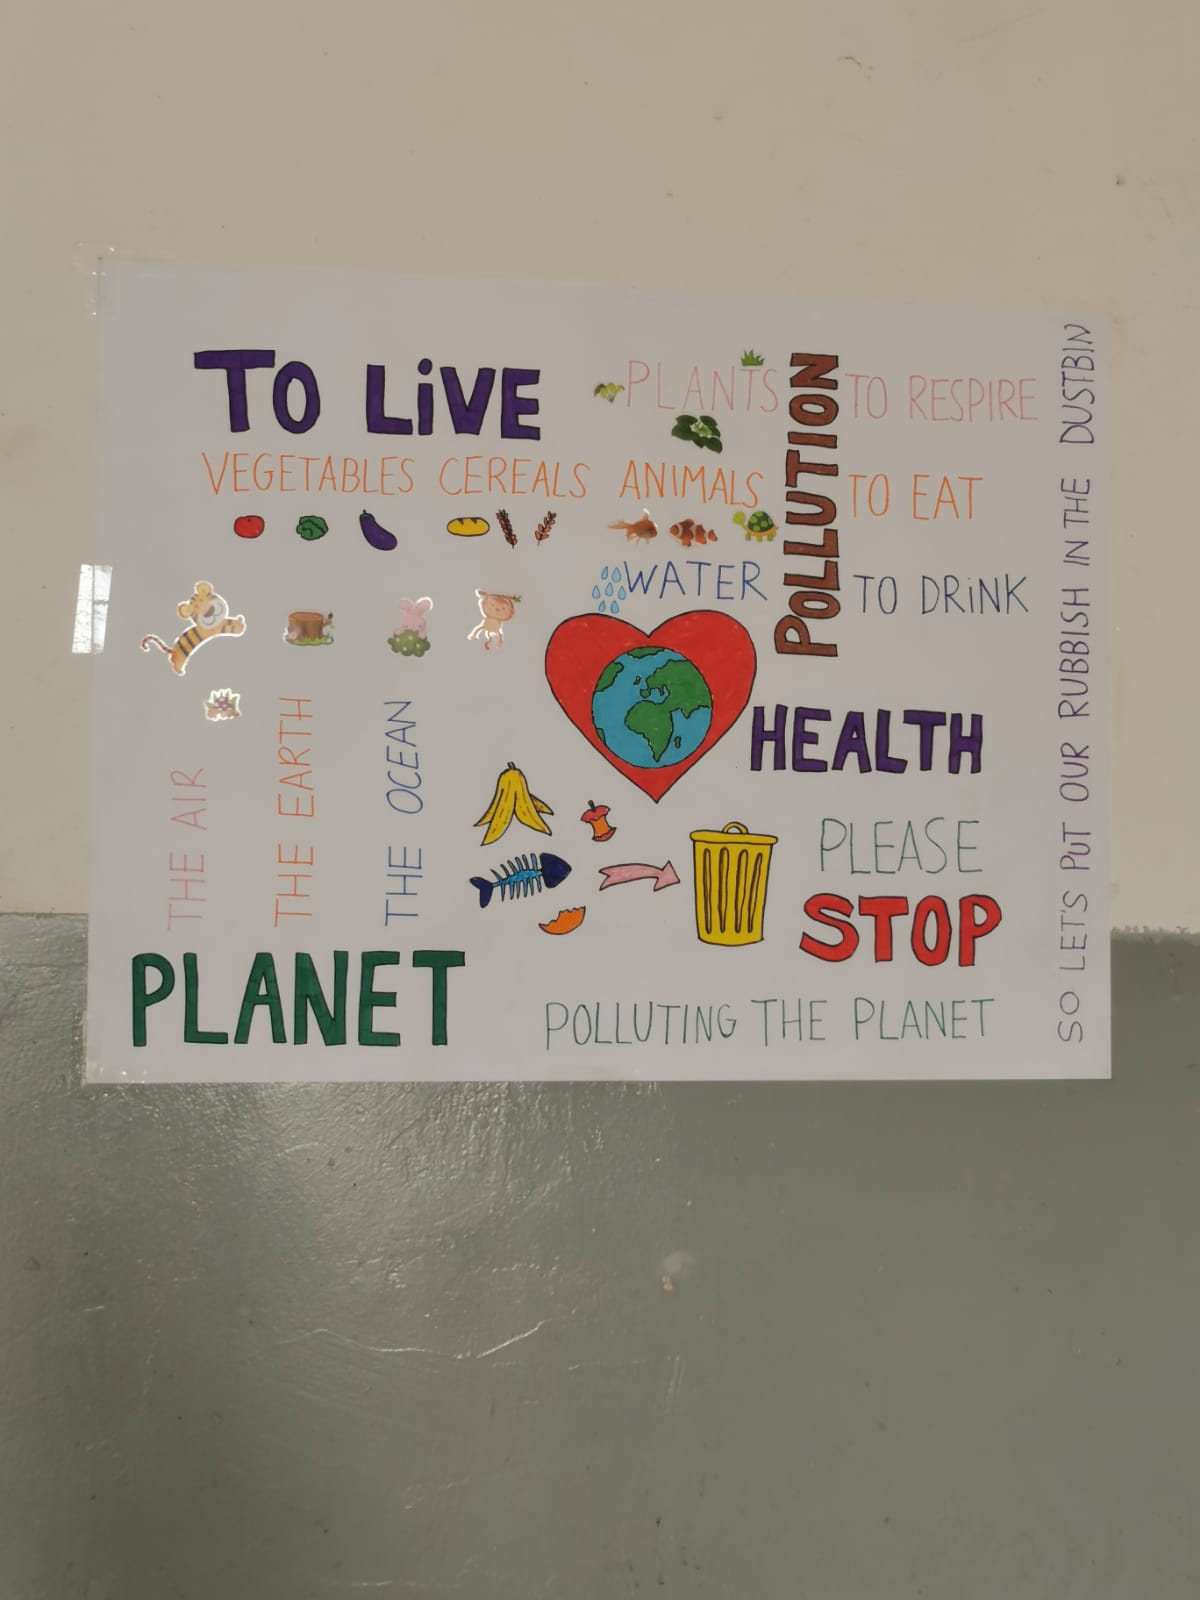 TO LiVE
PLANTS
TO RESPIRE
VEGETABLES CEREALS ANIMALS
TO EAT
WATER
TO DRiNK
POLLUTION
HEALTH
THE AIR
THE EARTH
THE OCEAN
PLANET
PLEASE
STOP
POLLUTING THE PLANET
SO LET'S PUT OUR RUBBISH IN THE DUSTBIN